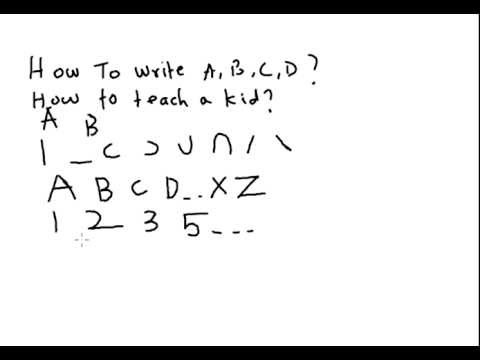 How To write A, B, C, D?
How to teach a kid?
A B
| _ ⊂ ⊃ ∪ ∩ / \
A B C D_ .. X Z
1 2 3 5_ _ _